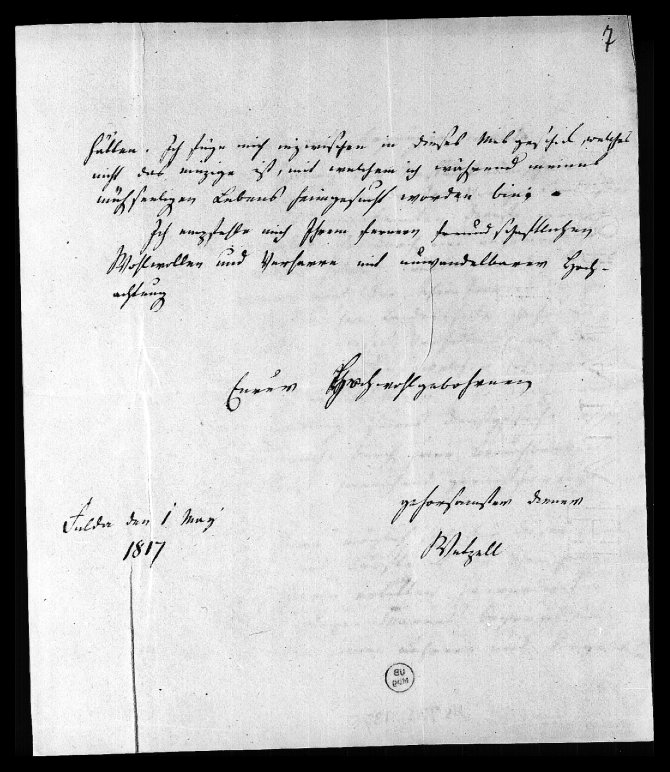 7
hätten. Ich füge mich inzwischen in dieses Mißgeschick, welches
nicht das einzige ist, mit welchem ich während meines
mühseeligen Lebens heimgesucht worden bin;
Ich empfehle mich Ihrem fernern freundschaftlichen
Wohlwollen und Verharre mit unwandelbarer Hoch-
achtung
Euer Hochwohlgebohrnen
gehorsamster diener
Fulda den 1 May
1817